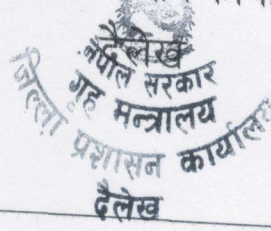 दैलेख
नेपाल सरकार
गृह मन्त्रालय
जिल्ला प्रशासन कार्यालय
दैलेख